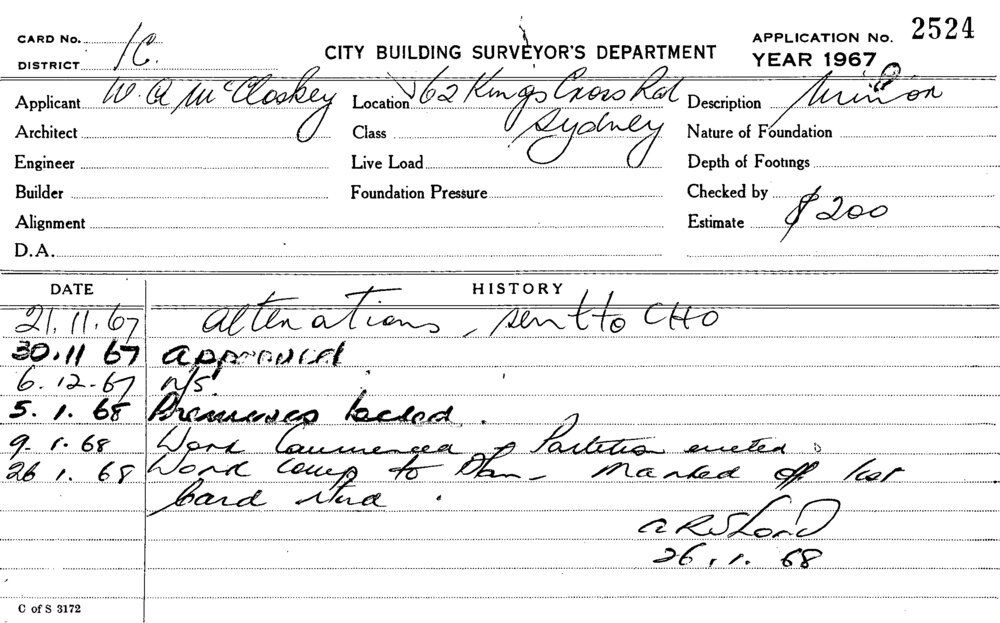 CARD No. CITY BUILDING SURVEYOR'S DEPARTMENT APPLICATION No. 2524
DISTRICT 1C. YEAR 1967
Applicant W. A McCloskey Location 62 Kings Cross Rd Description Minor
Architect Class Sydney Nature of Foundation
Engineer Live Load Depth of Footings
Builder Foundation Pressure Checked by
Alignment Estimate $200
D.A.
DATE HISTORY
21.11.67 alterations, sent to CHO
30.11 67 approved
6.12.67 n/s
5.1.68 Premises locked.
9.1.68 Work Commenced Partition erected
26 1.68 Work comp to Plan - Marked off list
Card
26.1.68
C of S 3172